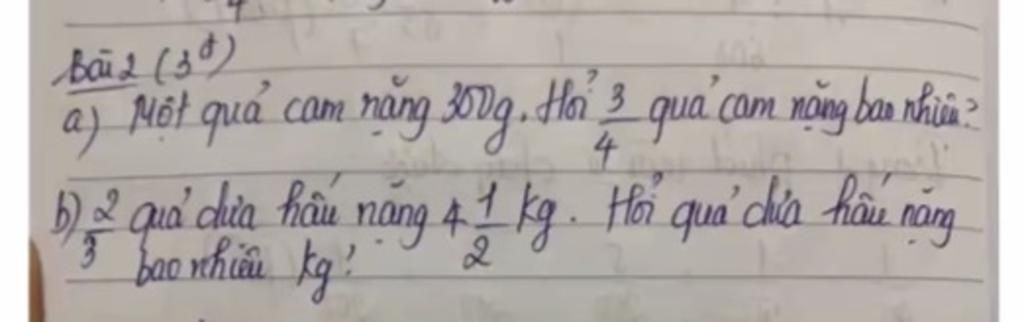 Bài 2 (3đ)
a) Một quả cam nặng 300g. Hỏi 3/4 quả cam nặng bao nhiêu?
b) 2/3 quả dưa hấu nặng 4 1/2 kg. Hỏi quả dưa hấu nặng
bao nhiêu kg?